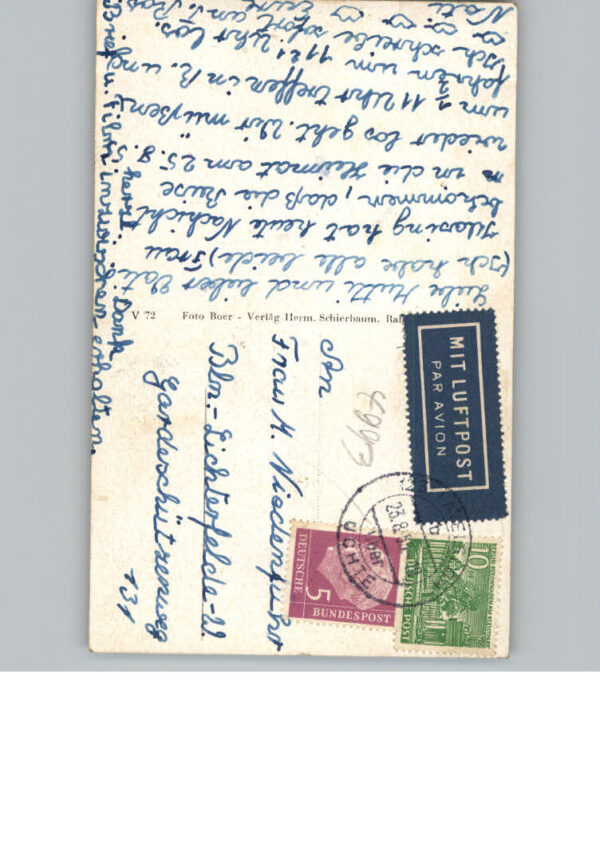 Liebe Mutti und lieber Vati
(Ich habe alle beide) Frau
hat heute Nachricht
bekommen, daß die Reise
in die Heimat am 25.8.5
wieder los geht. Wir müßen
um ½ 11 Uhr treffen in R. und
fahren um 11²¹ Uhr los.
Ich schreibe sofort an T. Ros
Brief u. Film inzwischen erhalten.
herzl. Dank
V 72 Foto Boer - Verlag Herm. Schierbaum, Ra
MIT LUFTPOST
PAR AVION
An
Frau H. Niedenfuhr
Bln.-Lichterfelde-W.
Gardeschützenweg
131
4993
23.8.5
UCHTE
5
DEUTSCHE
BUNDESPOST
10
DEUTSCHE POST